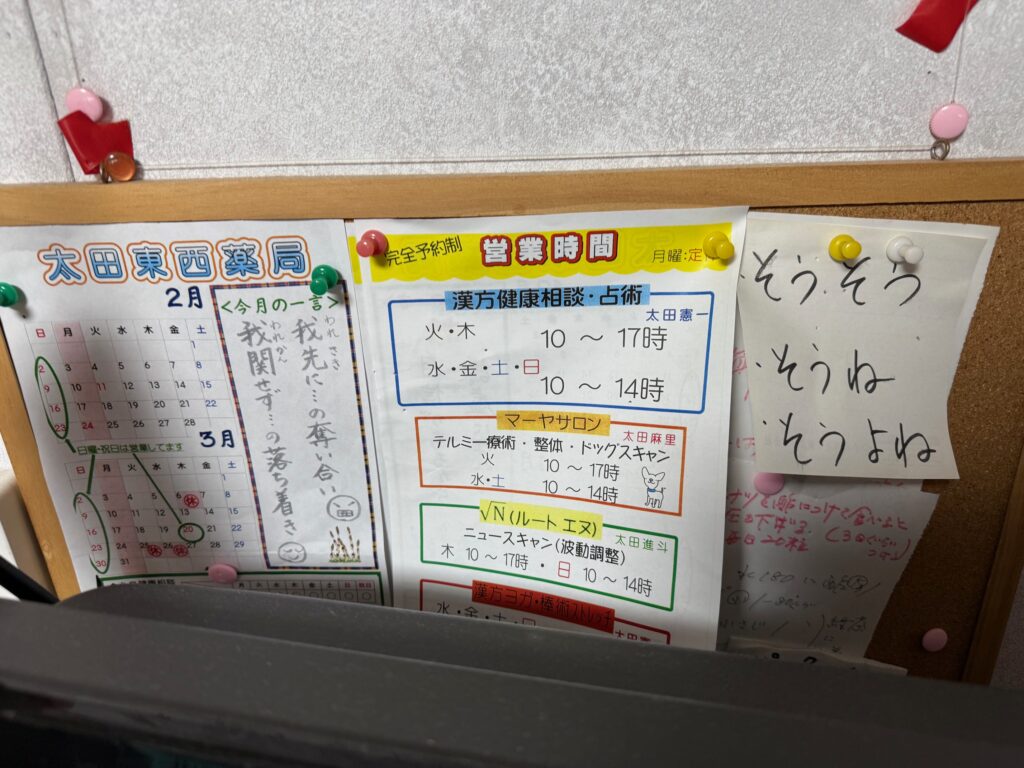 太田東西薬局
2月
日 月 火 水 木 金 土
1
2 3 4 5 6 7 8
9 10 11 12 13 14 15
16 17 18 19 20 21 22
23 24 25 26 27 28
日曜・祝日は営業してます
3月
日 月 火 水 木 金 土
1
2 3 4 5 6 休 7 8
9 10 11 12 13 14 15
16 17 18 19 20 21 22
23 24 25 休 26 休 27 28 29
30 31
<今月の一言>
われ さき
我先に…の奪い合い
われ かん
我関せず…の落ち着き
完全予約制
営業時間
月曜:定
漢方健康相談・占術
太田憲一
火・木 10 〜 17時
水・金・土・日
10 〜 14時
マーヤサロン
太田麻里
テルミー療術・整体・ドッグスキャン
火 10 〜 17時
水・土 10 〜 14時
√N(ルート エヌ)
太田進斗
ニュースキャン(波動調整)
木 10 〜 17時 ・ 日 10 〜 14時
漢方ヨガ・棒術ストレッチ
水・金・土・日
・そう.そう
・そうね
・そうよね